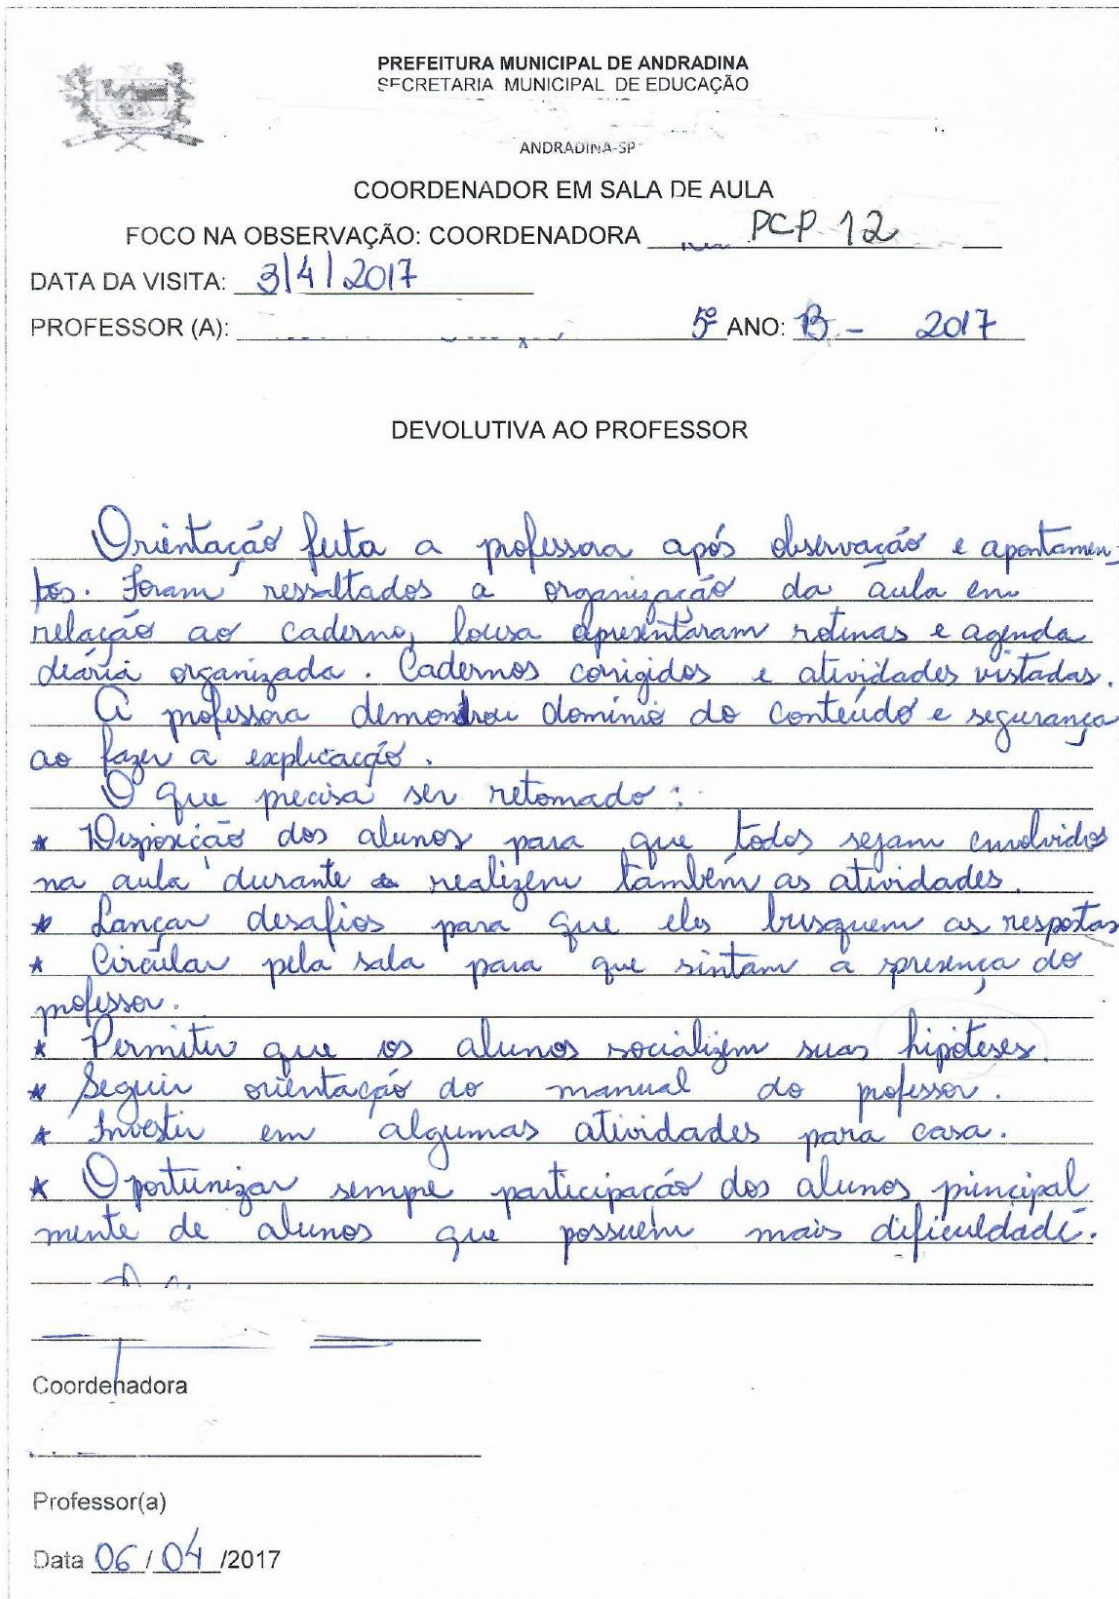 PREFEITURA MUNICIPAL DE ANDRADINA
SECRETARIA MUNICIPAL DE EDUCAÇÃO
ANDRADINA-SP
COORDENADOR EM SALA DE AULA
FOCO NA OBSERVAÇÃO: COORDENADORA PCP 12
DATA DA VISITA: 3/4/2017
PROFESSOR (A): 5º ANO: B - 2017
DEVOLUTIVA AO PROFESSOR
Orientação feita a professora após observação e apontamen-
tos. Foram ressaltados a organização da aula em
relação ao caderno, lousa apresentaram rotinas e agenda
diária organizada. Cadernos corrigidos e atividades vistadas.
A professora demonstrou domínio do conteúdo e segurança
ao fazer a explicação.
O que precisa ser retomado:
* Disposição dos alunos para que todos sejam envolvidos
na aula durante realizem também as atividades.
* Lançar desafios para que eles busquem as respostas
* Circular pela sala para que sintam a presença do
professor.
* Permitir que os alunos socializem suas hipóteses.
* Seguir orientação do manual do professor.
* Investir em algumas atividades para casa.
* Oportunizar sempre participação dos alunos principal
mente de alunos que possuem mais dificuldade.
Coordenadora
Professor(a)
Data 06/04/2017